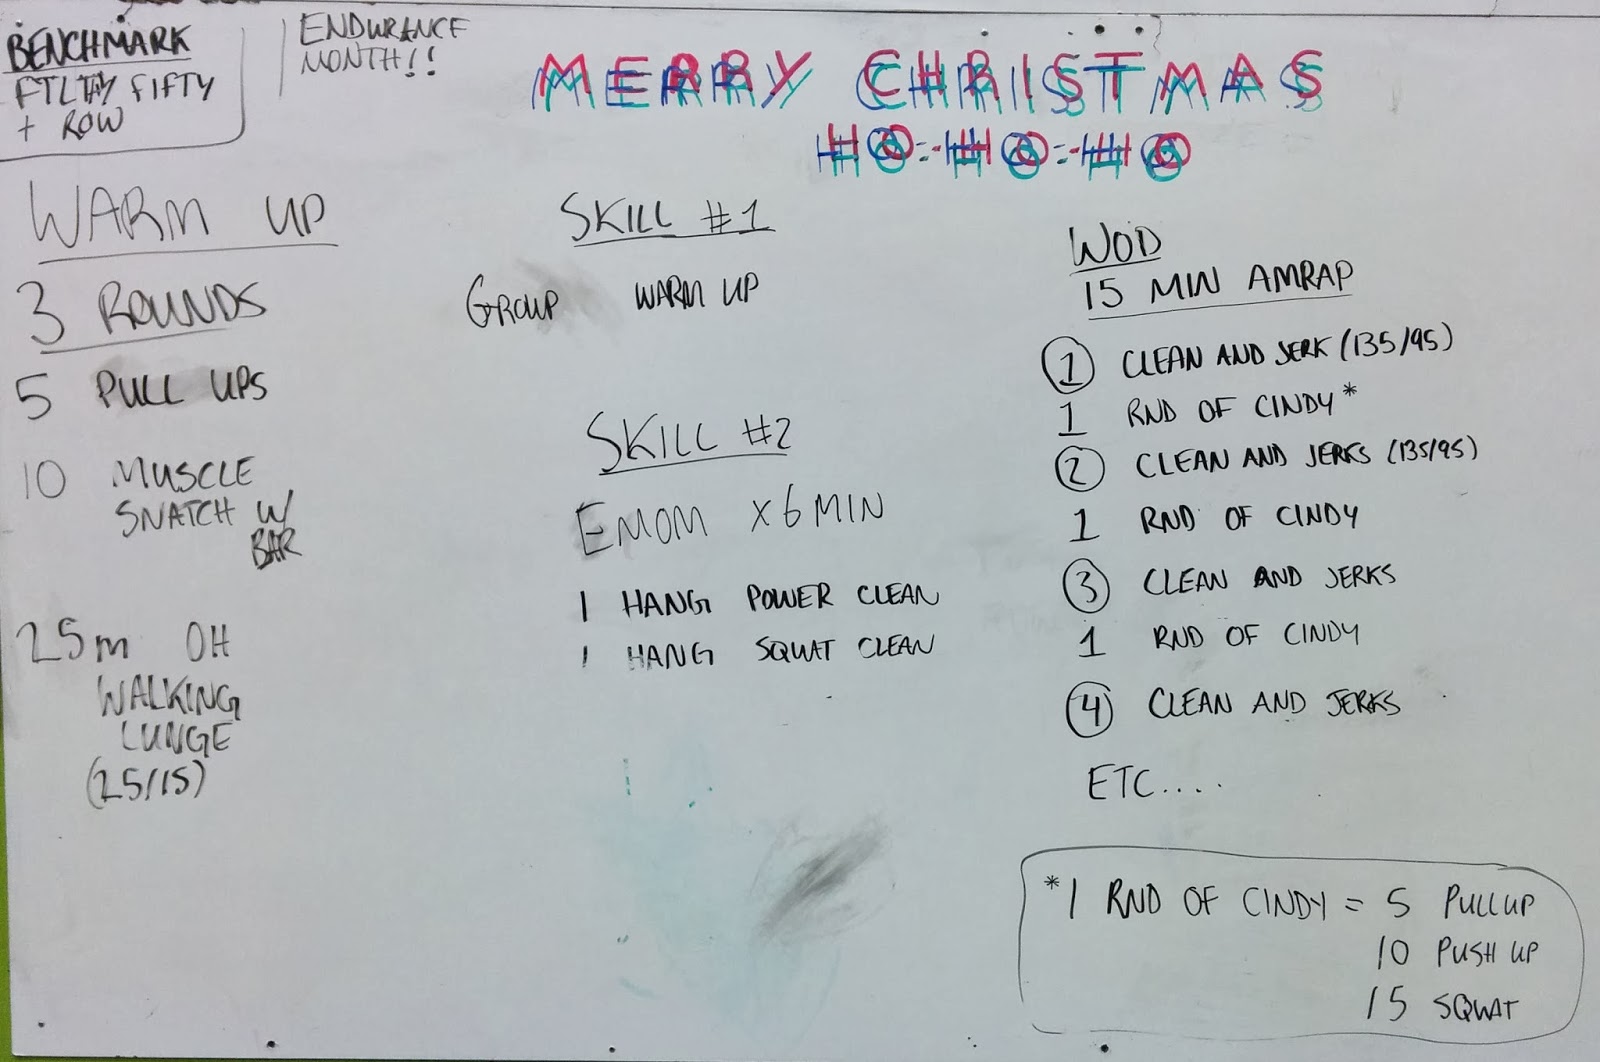 BENCHMARK
FILTHY FIFTY
+ ROW
ENDURANCE
MONTH!!
MERRY CHRISTMAS
HO-HO-HO
WARM UP
3 ROUNDS
5 PULL UPS
10 MUSCLE
SNATCH W/
BAR
25m OH
WALKING
LUNGE
(25/15)
SKILL #1
GROUP WARM UP
SKILL #2
EMOM x 6 MIN
1 HANG POWER CLEAN
1 HANG SQUAT CLEAN
WOD
15 MIN AMRAP
1 CLEAN AND JERK (135/95)
1 RND OF CINDY*
2 CLEAN AND JERKS (135/95)
1 RND OF CINDY
3 CLEAN AND JERKS
1 RND OF CINDY
4 CLEAN AND JERKS
ETC....
*1 RND OF CINDY = 5 PULLUP
10 PUSH UP
15 SQUAT